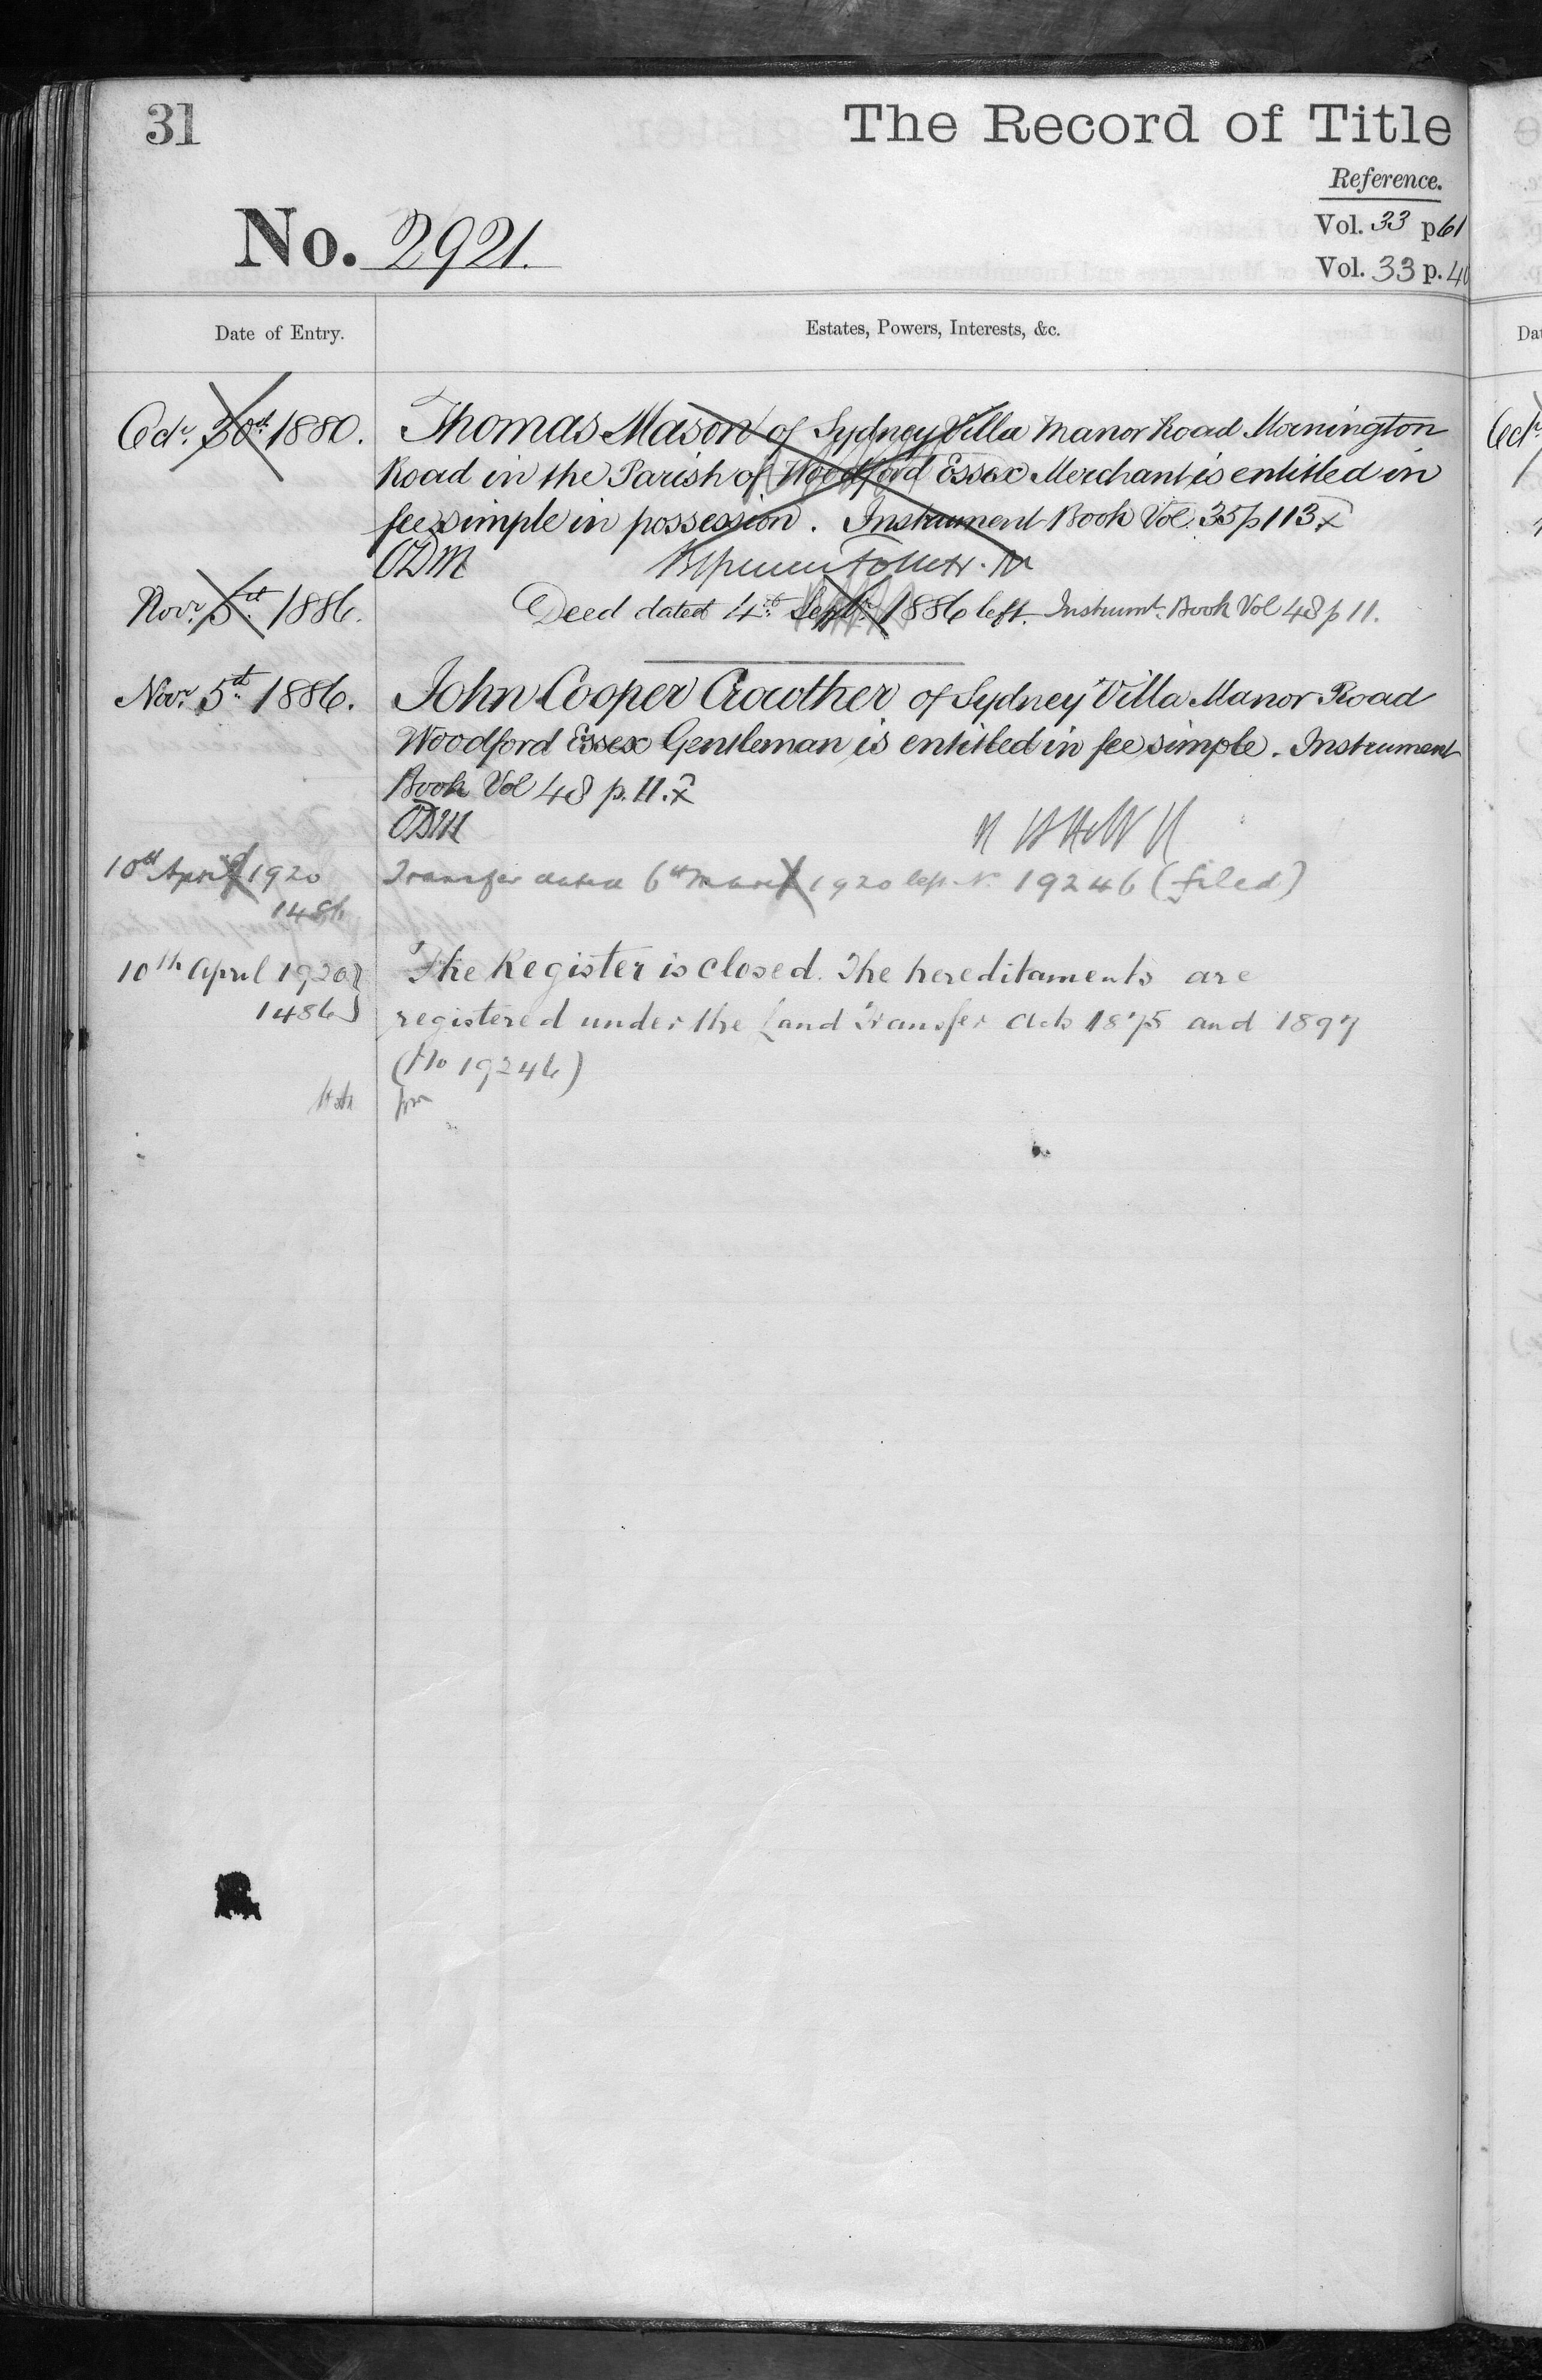 31
The Record of Title
Reference.
Vol. 33 p 61
No. 2921.
Vol. 33 p. 4
Date of Entry.
Estates, Powers, Interests, &c.
Octr. 30th 1880.
Thomas Mason of Sydney Villa Manor Road Mornington
Road in the Parish of Woodford Essex Merchant is entitled in
fee simple in possession. Instrument Book Vol. 35 p 113
Novr. 5th 1886.
Deed dated 4th Septr. 1886 left. Instrumt. Book Vol 48 p 11.
Novr. 5th 1886.
John Cooper Crowther of Sydney Villa Manor Road
Woodford Essex Gentleman is entitled in fee simple. Instrument
Book Vol 48 p. 11.
10th April 1920
1486
Transfer dated 6th March 1920 left No 19246 (filed)
10th April 1920
1486
The Register is closed. The hereditaments are
registered under the Land Transfer Acts 1875 and 1897
(No 19246)